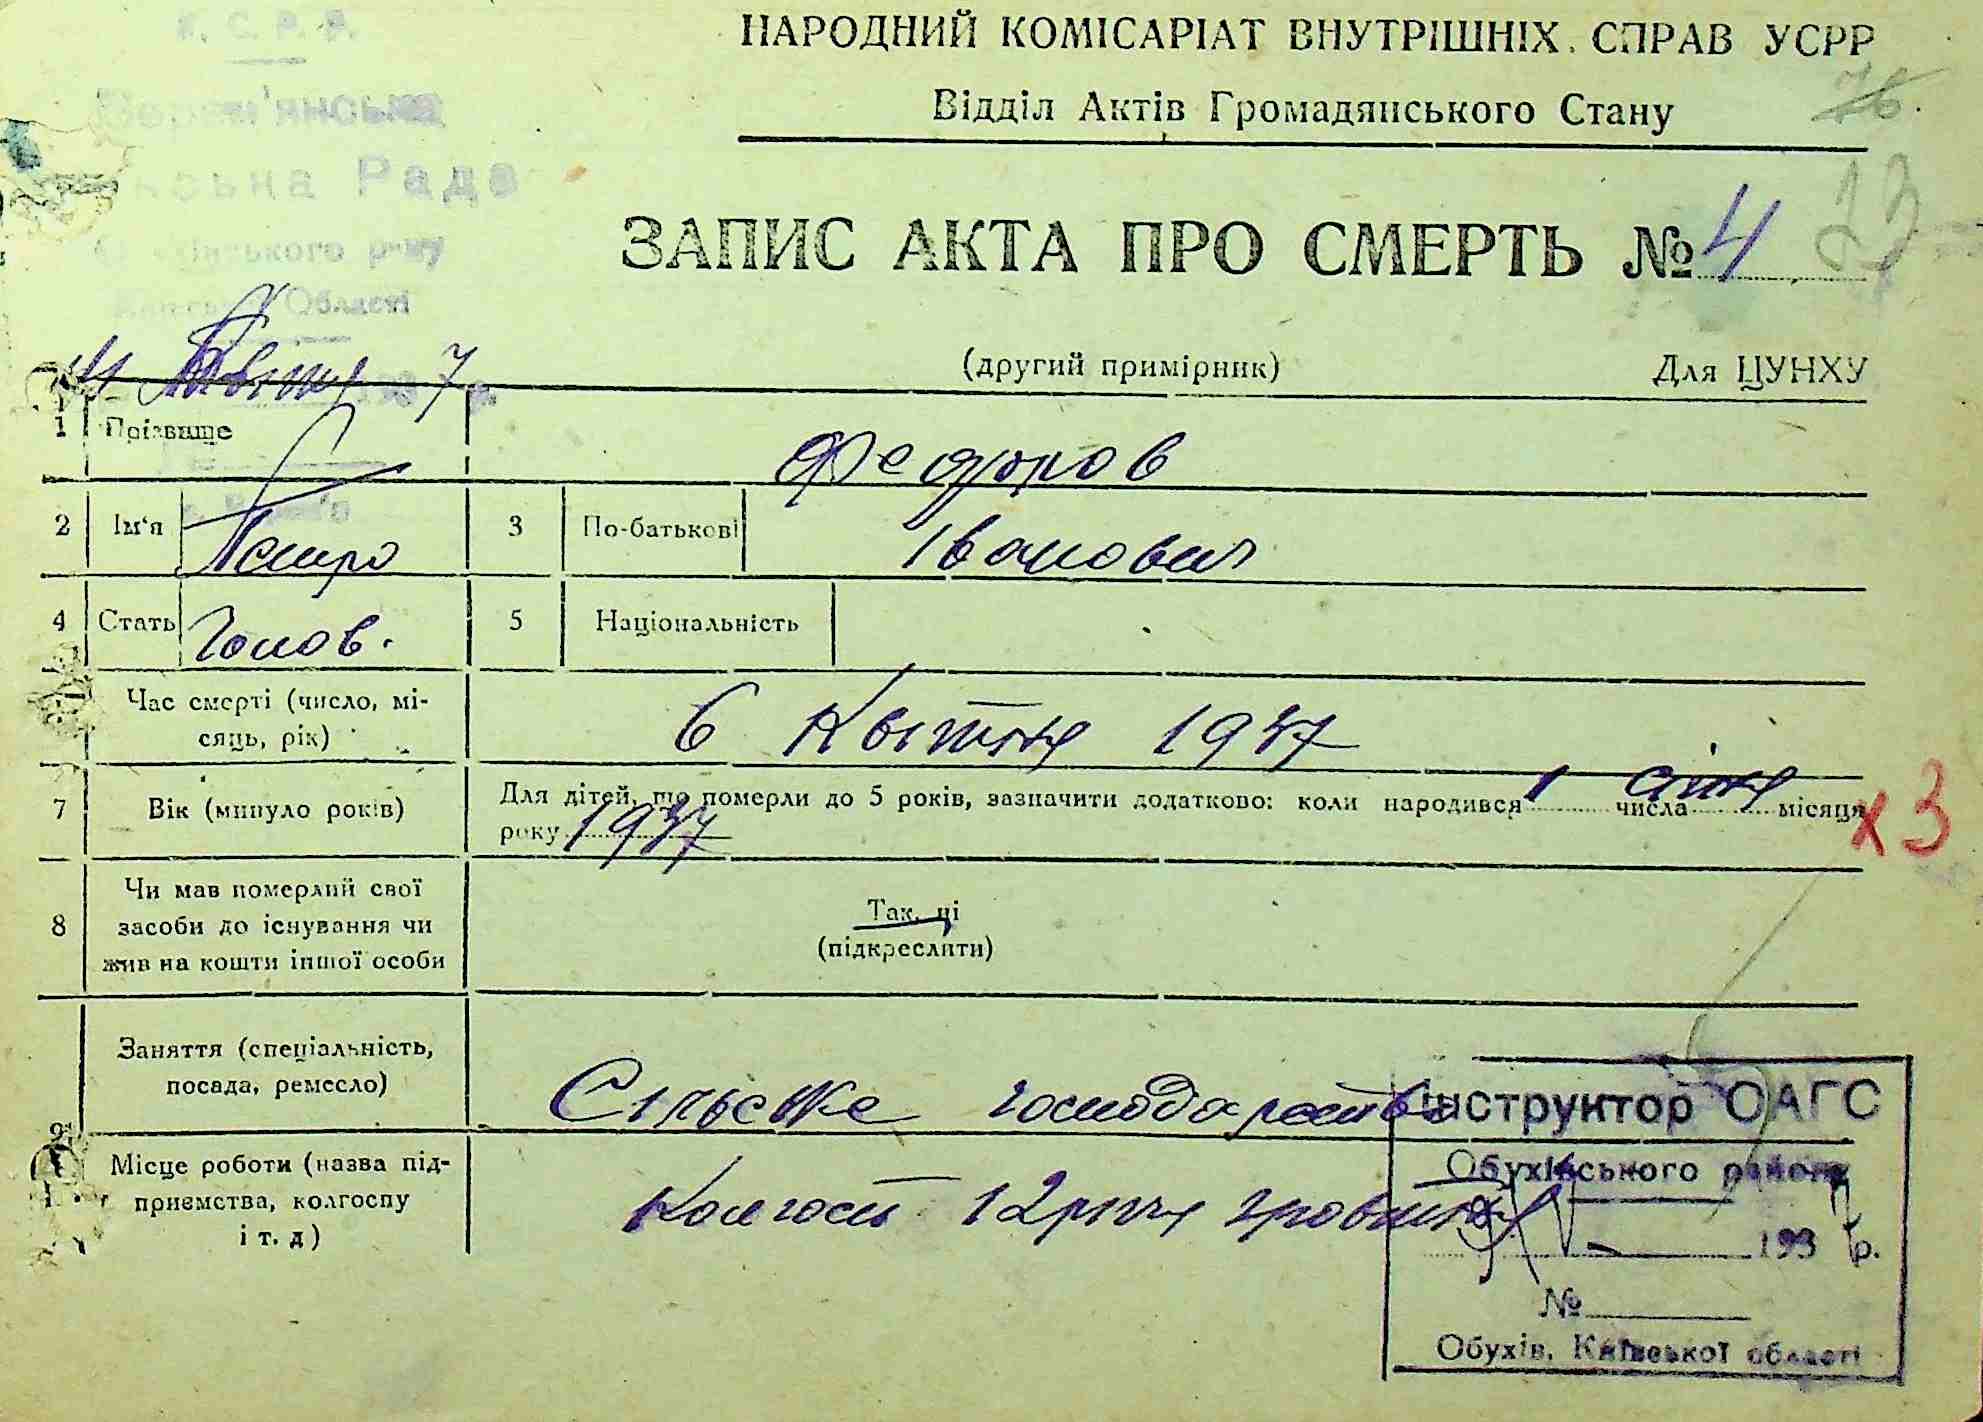 У. С. Р. Р.
Верем'янська
Рада
району
Області
НАРОДНИЙ КОМІСАРІАТ ВНУТРІШНІХ СПРАВ УСРР
Відділ Актів Громадянського Стану
76
ЗАПИС АКТА ПРО СМЕРТЬ № 4
(другий примірник) Для ЦУНХУ
Квітня 1937 р.
1 Прізвище Федоров
2 Ім'я Петро 3 По-батькові Іванович
4 Стать Чолов. 5 Національність
Час смерті (число, мі-
сяць, рік) 6 Квітня 1937
7 Вік (минуло років) Для дітей, що померли до 5 років, зазначити додатково: коли народився 1 числа січня місяця
року 1937
х 3
8 Чи мав померлий свої
засоби до існування чи
жив на кошти іншої особи
Так, ні
(підкреслити)
9 Заняття (спеціальність,
посада, ремесло) Сільське господарство
Місце роботи (назва під-
приємства, колгоспу
і т. д) Колгосп 12 річчя Жовтня
Інструктор ОАГС
Обухівського району
1937 р.
№
Обухів, Київської області